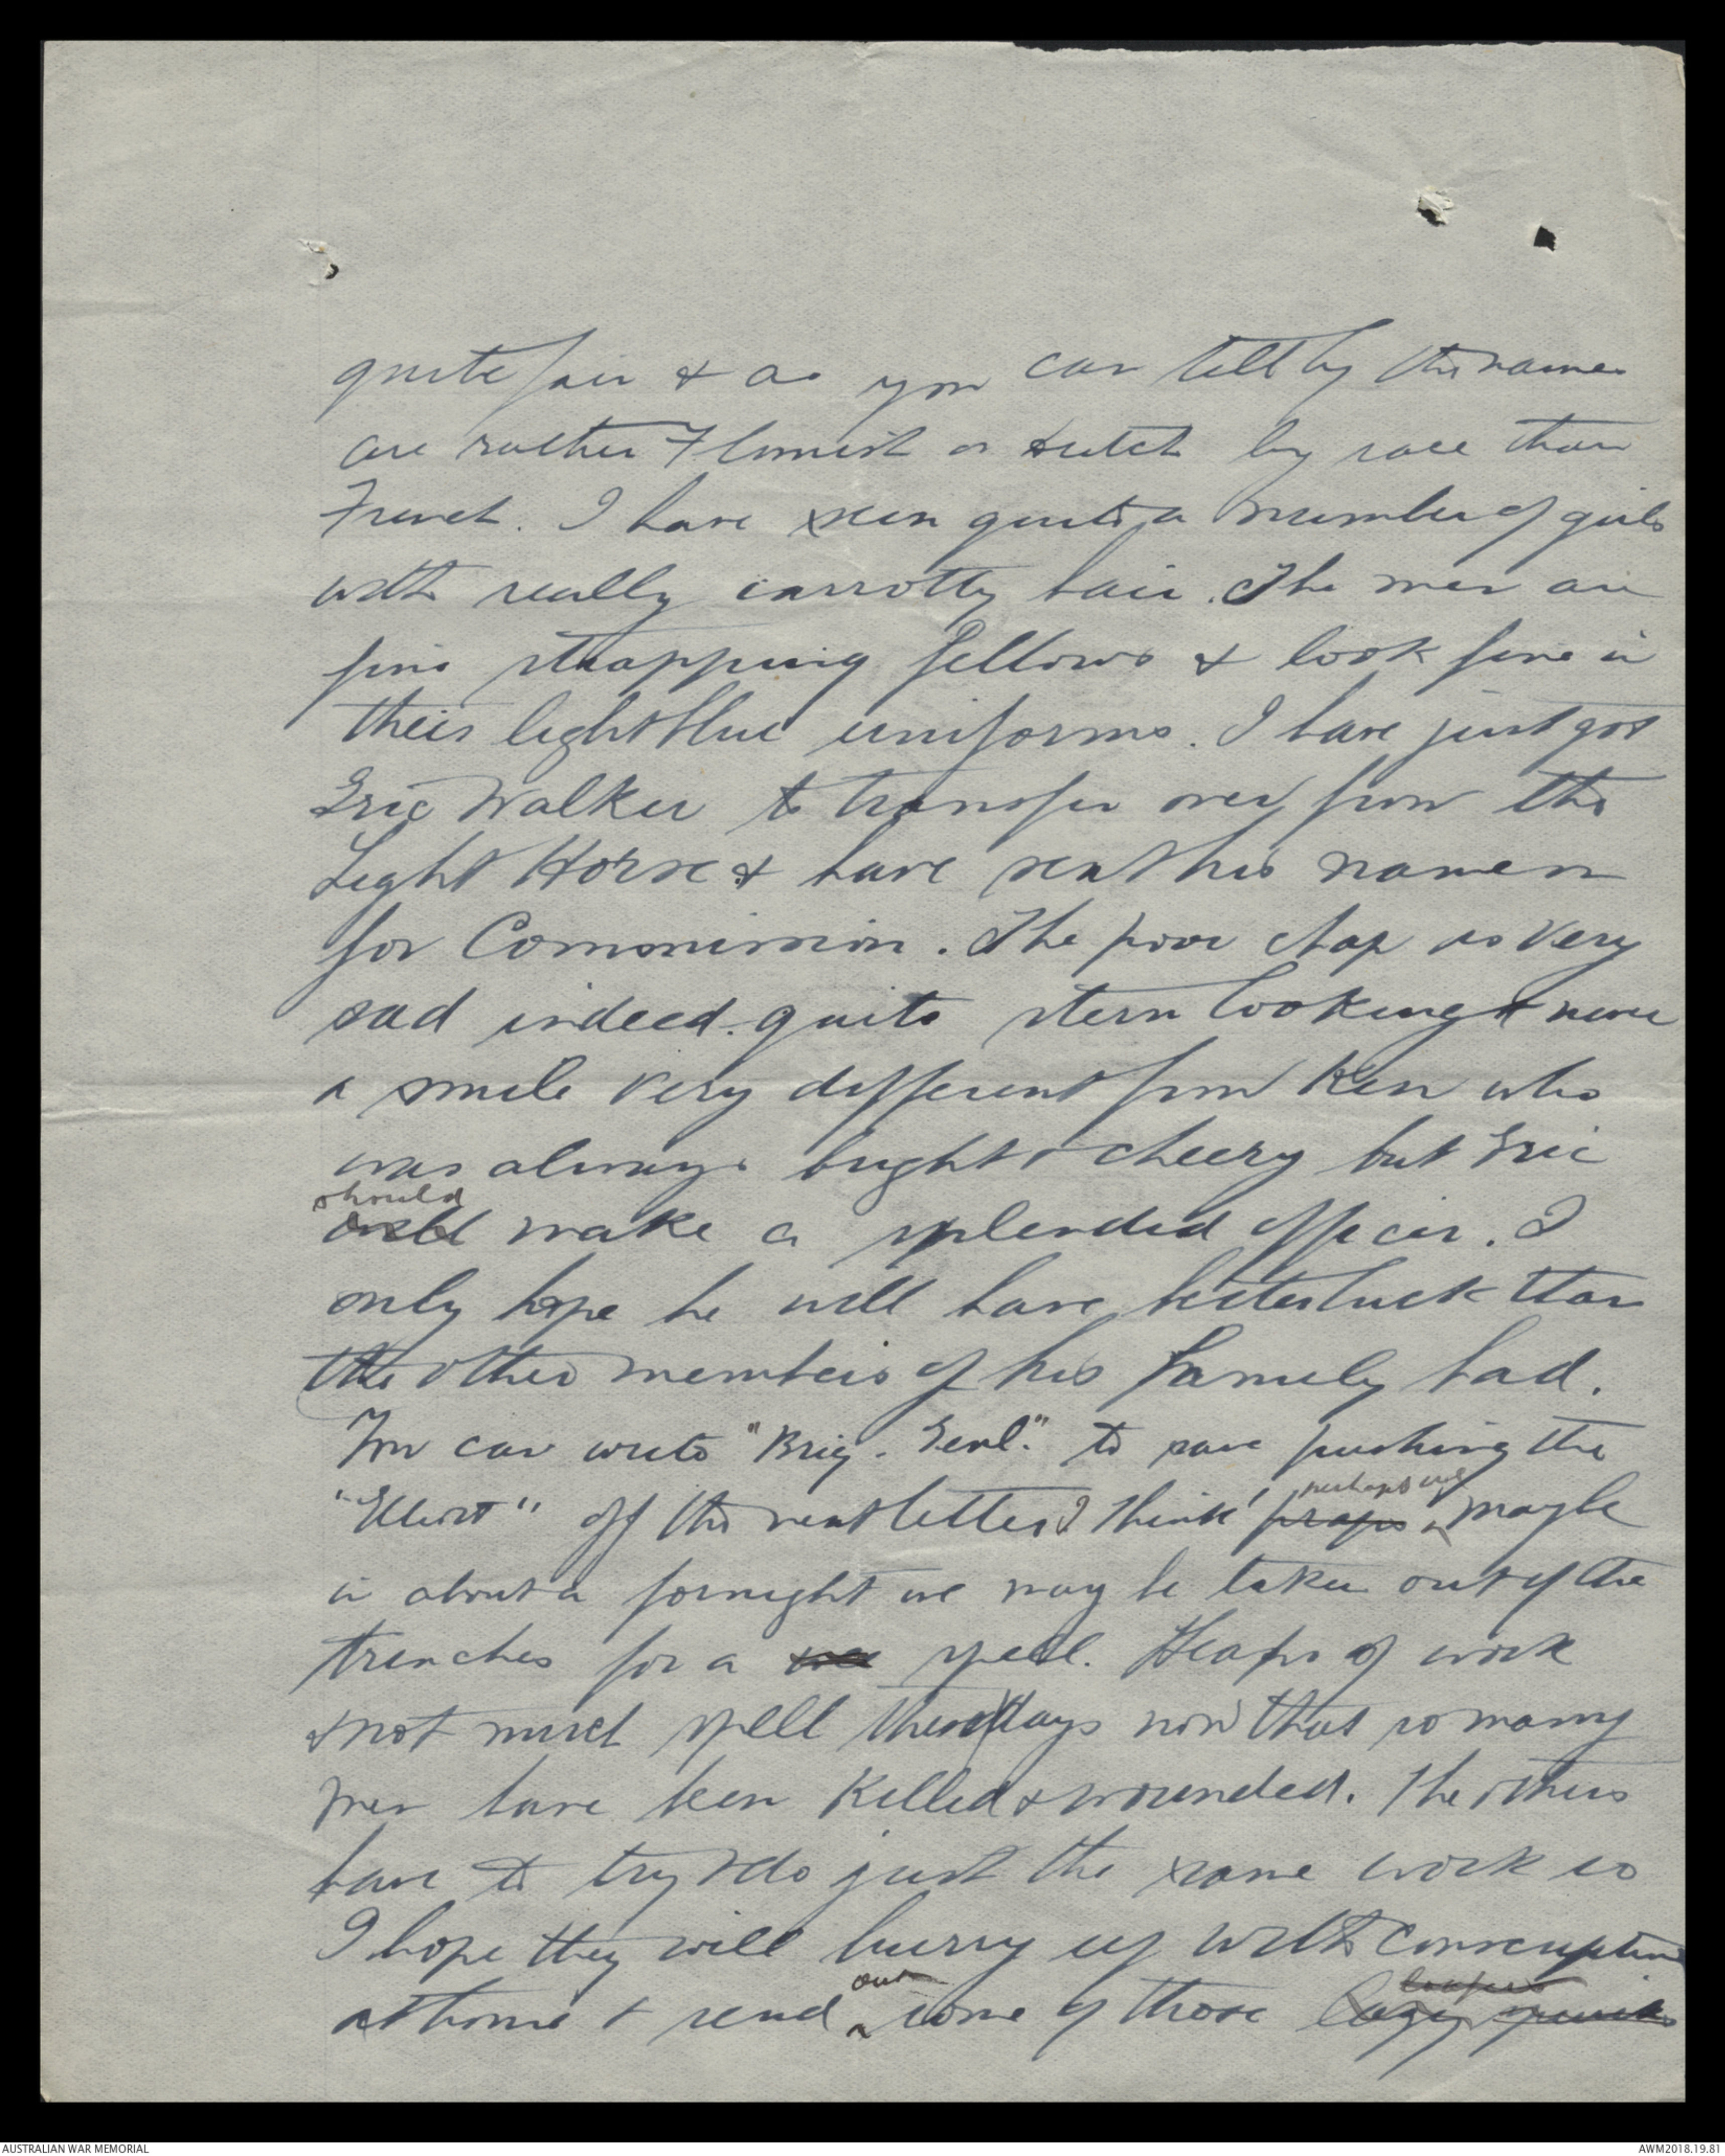 quite fair & as you can tell by the names
are rather Flemish or Dutch by race than
French. I have seen quite a number of girls
with really carrotty hair. The men are
fine strapping fellows & look fine in
their light blue uniforms. I have just got
Eric Walker to transfer over from the
Light Horse & have sent his name in
for Commission. The poor chap is very
sad indeed. quite stern looking & never
a smile very different from Ken who
was always bright & cheery but Eric
should
will make a splendid officer. I
only hope he will have better luck than
the other members of his family had.
You can write "Brig. Genl." to save pushing the
"Elliott" off the next letter I think
perhaps we
praps maybe
in about a fornight we may be taken out of the
trenches for a spell. Heaps of work
& not much spell these days now that so many
men have been killed & wounded. The others
have to try & do just the same work so
I hope they will hurry up with conscription
out loafers
at home & send some of those lazy
AUSTRALIAN WAR MEMORIAL AWM2018.19.81